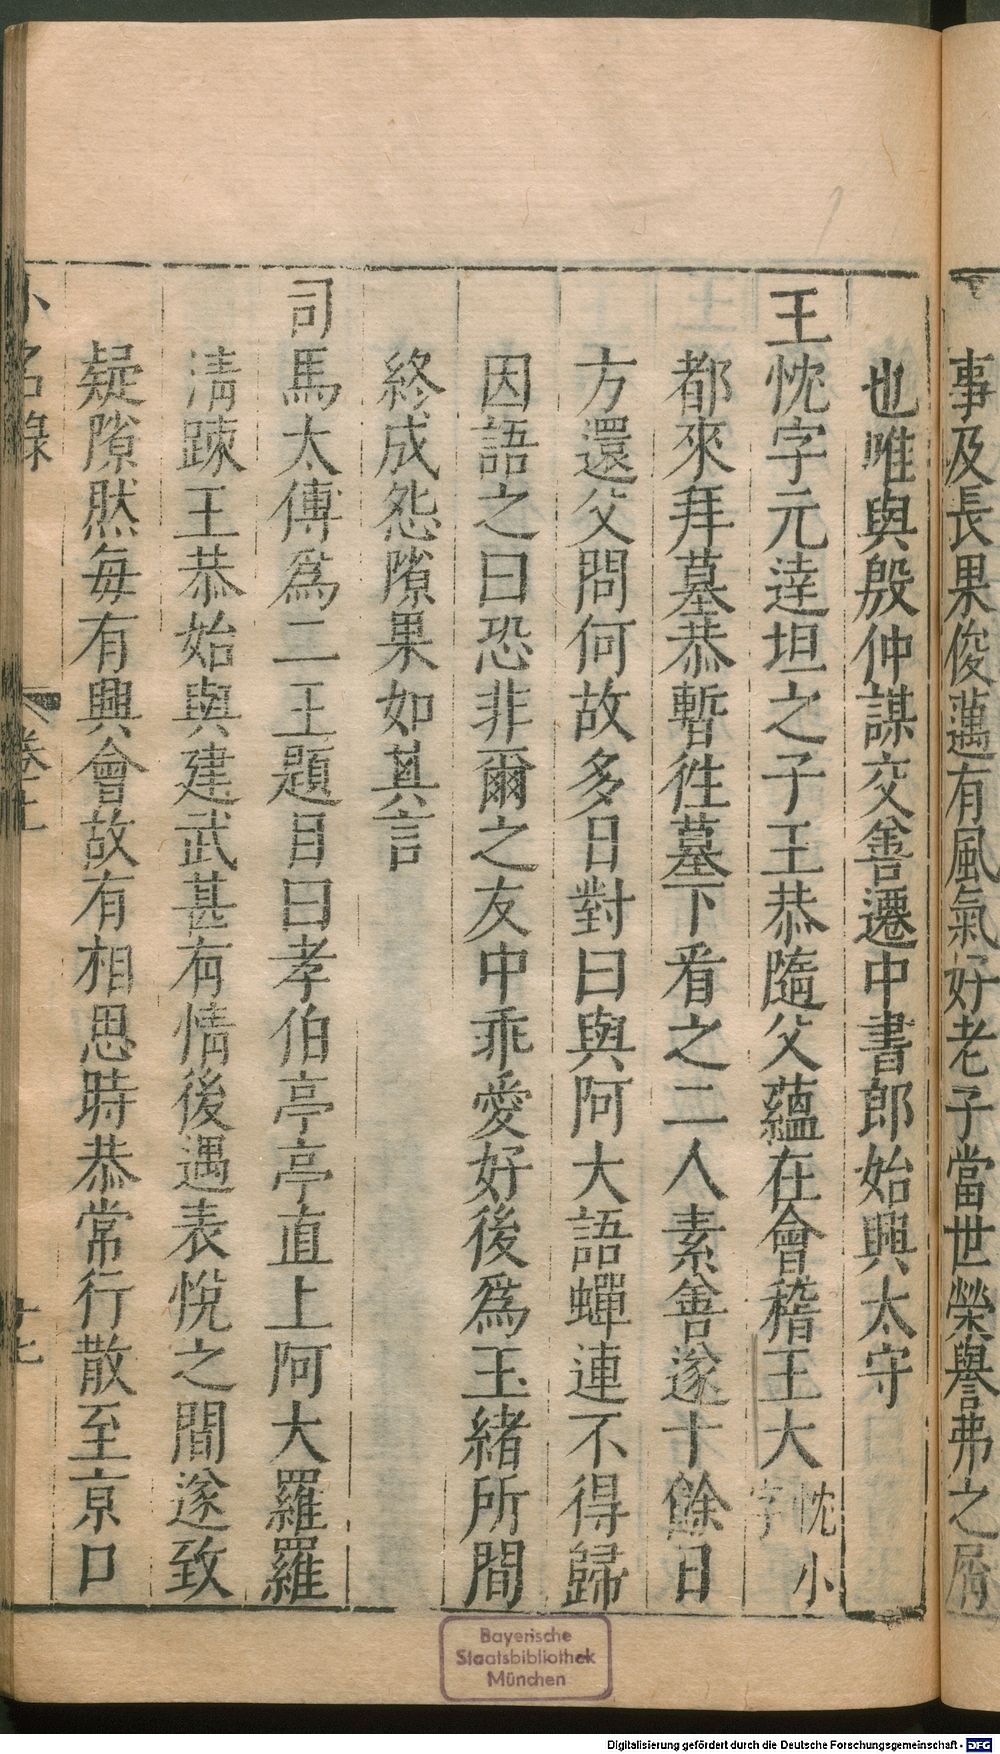 事及長果俊邁有風氣好老子當世榮譽弗之屑
也唯與殷仲謀交善遷中書郎始興太守
王忱字元達坦之子王恭隨父蘊在會稽王大忱小字
都來拜墓恭暫徃墓下看之二人素善遂十餘日
方還父問何故多日對曰與阿大語蟬連不得歸
因語之曰恐非爾之友中乖愛好後爲王緒所間
終成怨隙果如其言
司馬太傅爲二王題目曰孝伯亭亭直上阿大羅羅
清踈王恭始與建武甚有情後遇袁悅之間遂致
疑隙然每有興會故有相思時恭常行散至京口
小名錄
卷上
十七
Bayerische
Staatsbibliothek
München
Digitalisierung gefördert durch die Deutsche Forschungsgemeinschaft - DFG